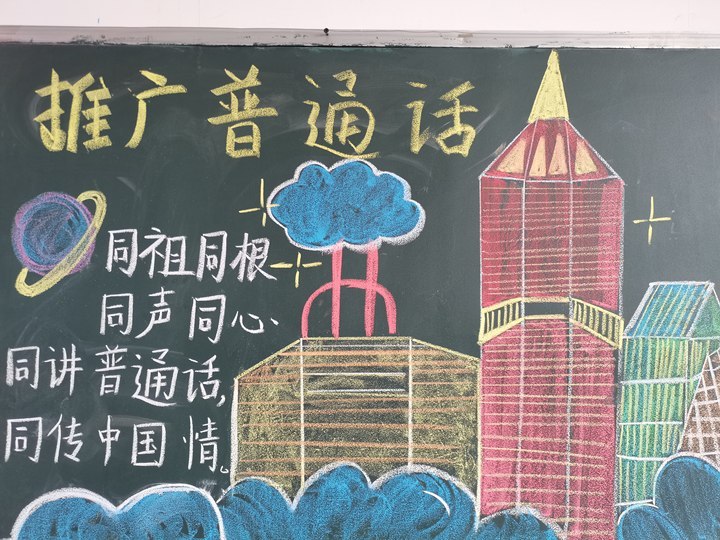 推广普通话
同祖同根
同声同心.
同讲普通话,
同传中国情。